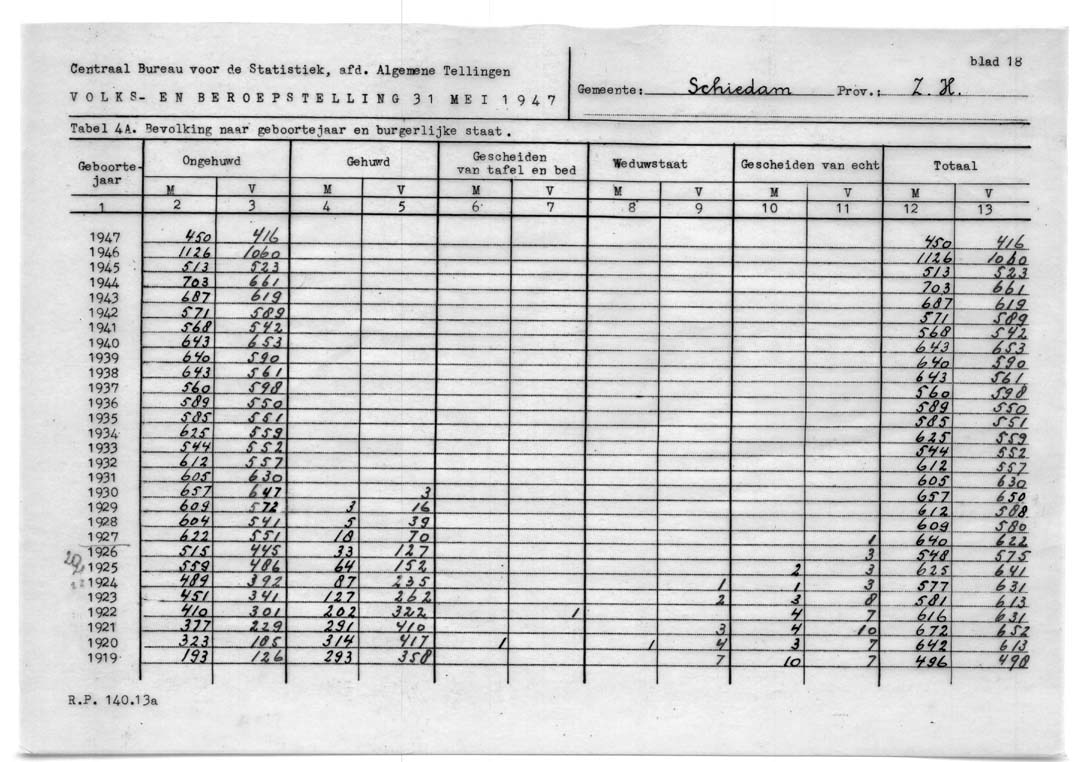 Centraal Bureau voor de Statistiek, afd. Algemene Tellingen
VOLKS- EN BEROEPSTELLING 31 MEI 1947
blad 18
Gemeente: Schiedam Prov.: Z. H.
Tabel 4A. Bevolking naar geboortejaar en burgerlijke staat.
Geboorte-jaar Ongehuwd Gehuwd Gescheiden van tafel en bed Weduwstaat Gescheiden van echt Totaal
M V M V M V M V M V M V
1 2 3 4 5 6 7 8 9 10 11 12 13
1947 450 416 450 416
1946 1126 1060 1126 1060
1945 513 523 513 523
1944 703 661 703 661
1943 687 619 687 619
1942 571 589 571 589
1941 568 542 568 542
1940 643 653 643 653
1939 640 590 640 590
1938 643 561 643 561
1937 560 598 560 598
1936 589 550 589 550
1935 585 551 585 551
1934 625 559 625 559
1933 544 552 544 552
1932 612 557 612 557
1931 605 630 605 630
1930 657 647 3 657 650
1929 609 572 3 16 612 588
1928 604 541 5 39 609 580
1927 622 551 18 70 1 640 622
1926 515 445 33 127 3 548 575
1925 559 486 64 152 2 3 625 641
1924 489 392 87 235 1 1 3 577 631
1923 451 341 127 262 2 3 8 581 613
1922 410 301 202 322 1 4 7 616 631
1921 377 229 291 410 3 4 10 672 652
1920 323 185 314 417 1 1 4 3 7 642 613
1919 193 126 293 358 7 10 7 496 498
R.P. 140.13a